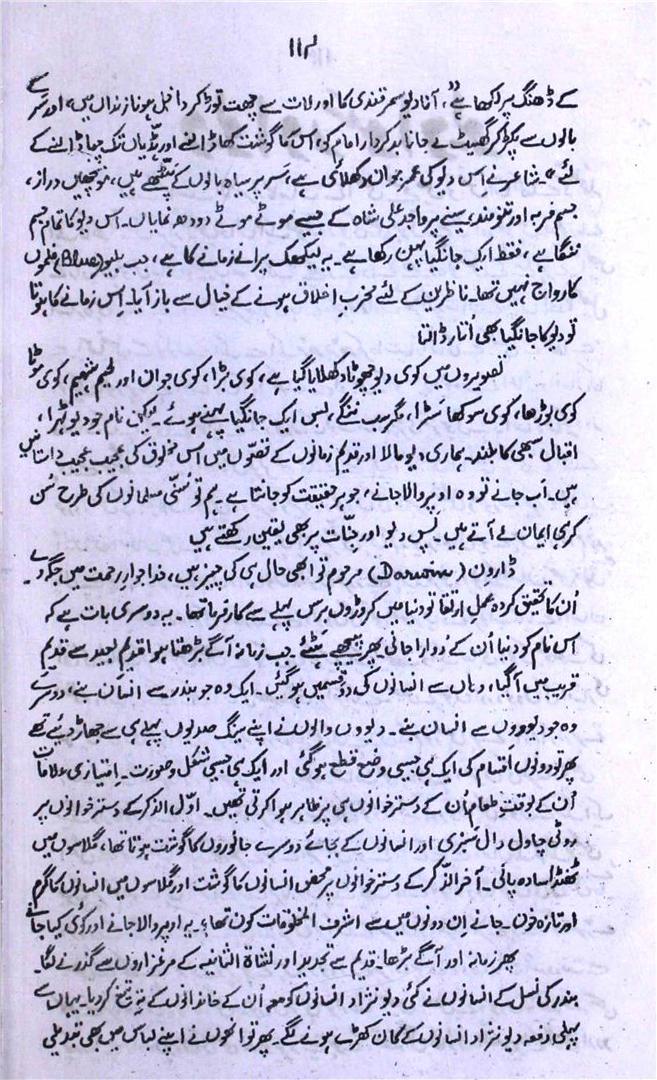 ۱۱۴
کے ڈھنگ پر لکھا ہے“، آنا دیو سمر قندی کا اور لات سے چھت توڑ کر داخل ہونا زنداں میں، اور سَر کے
بالوں سے پکڑ کر گھسیٹ لے جانا بدکردار امام کو، اس کا گوشت کھا ڈالنے اور ہڈیاں تک چبا ڈالنے کے
لئے“۔ شاعر نے اس دیو کی عمر جوان دکھلائی ہے، سَر پر سیاہ بالوں کے پٹھے ہیں، مونچھیں دراز،
جسم فربہ اور تنومند، سینے پر واجد علی شاہ کے جیسے موٹے موٹے دودھ نمایاں۔ اس دیو کا تمام جسم
ننگا ہے، فقط ایک جانگیا پہن رکھا ہے۔ یہ لیکھک پرانے زمانے کا ہے، جب بلیو (Blue) فلموں
کا رواج نہیں تھا۔ ناظرین کے لئے مخرب اخلاق ہونے کے خیال سے باز آیا۔ اِس زمانے کا ہوتا
تو دیو کا جانگیا بھی اُتار ڈالتا
تصویروں میں کوی دیو چھوٹا دکھلایا گیا ہے، کوی بڑا، کوی جوان اور لحیم شحیم، کوی موٹا
کوی بوڑھا، کوی سوکھا سَڑا، مگر سب ننگے، بس ایک جانگیا پہنے ہوئے۔ لیکن نام جو دیو ٹہرا،
اقبال سبھی کا بلند۔ ہماری دیو مالا اور قدیم زمانوں کے قصّوں میں اس مخلوق کی عجیب عجیب داستانیں
ہیں۔ اَب جانے تو وہ اوپر والا جانے، جو ہر حقیقت کو جانتا ہے۔ ہم تو سُنّی مسلمانوں کی طرح سُن
کر ہی ایمان لے آتے ہیں۔ پس دیو اور جِنّات پر بھی یقین رکھتے ہیں
ڈارون (Darwin) مرحوم تو ابھی حال ہی کی چیز ہیں، خدا جوارِ رحمت میں جگہ دے۔
اُن کا تحقیق کردہ عملِ ارتقا تو دنیا میں کروڑوں برس پہلے سے کارفرما تھا۔ یہ دوسری بات ہے کہ
اس نام کو دنیا اُن کے دُوارا جانی پھر پیچھے ہٹئے۔ جب زمانہ آگے بڑھتا ہوا قدیم بعید سے قدیم
قریب میں آ گیا، وہاں سے انسانوں کی دو قسمیں ہو گئیں۔ ایک وہ جو بندر سے انسان بنے، دوسرے
وہ جو دیووں سے انسان بنے۔ دیووں والوں نے اپنے سینگ صدیوں پہلے ہی سے جھاڑ دیئے تھے
پھر تو دونوں اَقسام کی ایک ہی جیسی وضع قطع ہو گئی اور ایک ہی جیسی شکل و صورت۔ اِمتیازی علامات
اُن کے بوقت طعام اُن کے دسترخوانوں ہی پر ظاہر ہوا کرتی تھیں۔ اوّل الذکر کے دسترخوانوں پر
روٹی چاول دال سَبزی اور انسانوں کے بجائے دوسرے جانوروں کا گوشت ہوتا تھا، گلاسوں میں
ٹھنڈا سادہ پانی۔ آخرالذکر کے دسترخوانوں پر محض انسانوں کا گوشت اور گلاسوں میں انسانوں کا گرم
اور تازہ خون۔ جانے اِن دونوں میں سے اشرف المخلوقات کون تھا؟۔ یہ اوپر والا جانے اور کوئی کیا جانے
پھر زمانہ اور آگے بڑھا۔ قدیم سے تجدید اور نشاۃ الثانیہ کے مرغزاروں سے گذرنے لگا۔
بندر کی نسل کے انسانوں نے کئی دیو نژاد انسانوں کو معہ اُن کے خاندانوں کے تہِ تیغ کر دیا۔ یہاں سے
پہلی دفعہ دیو نژاد انسانوں کے کان کھڑے ہونے لگے۔ پھر تو انھوں نے اپنے لباس میں بھی تبدیلی